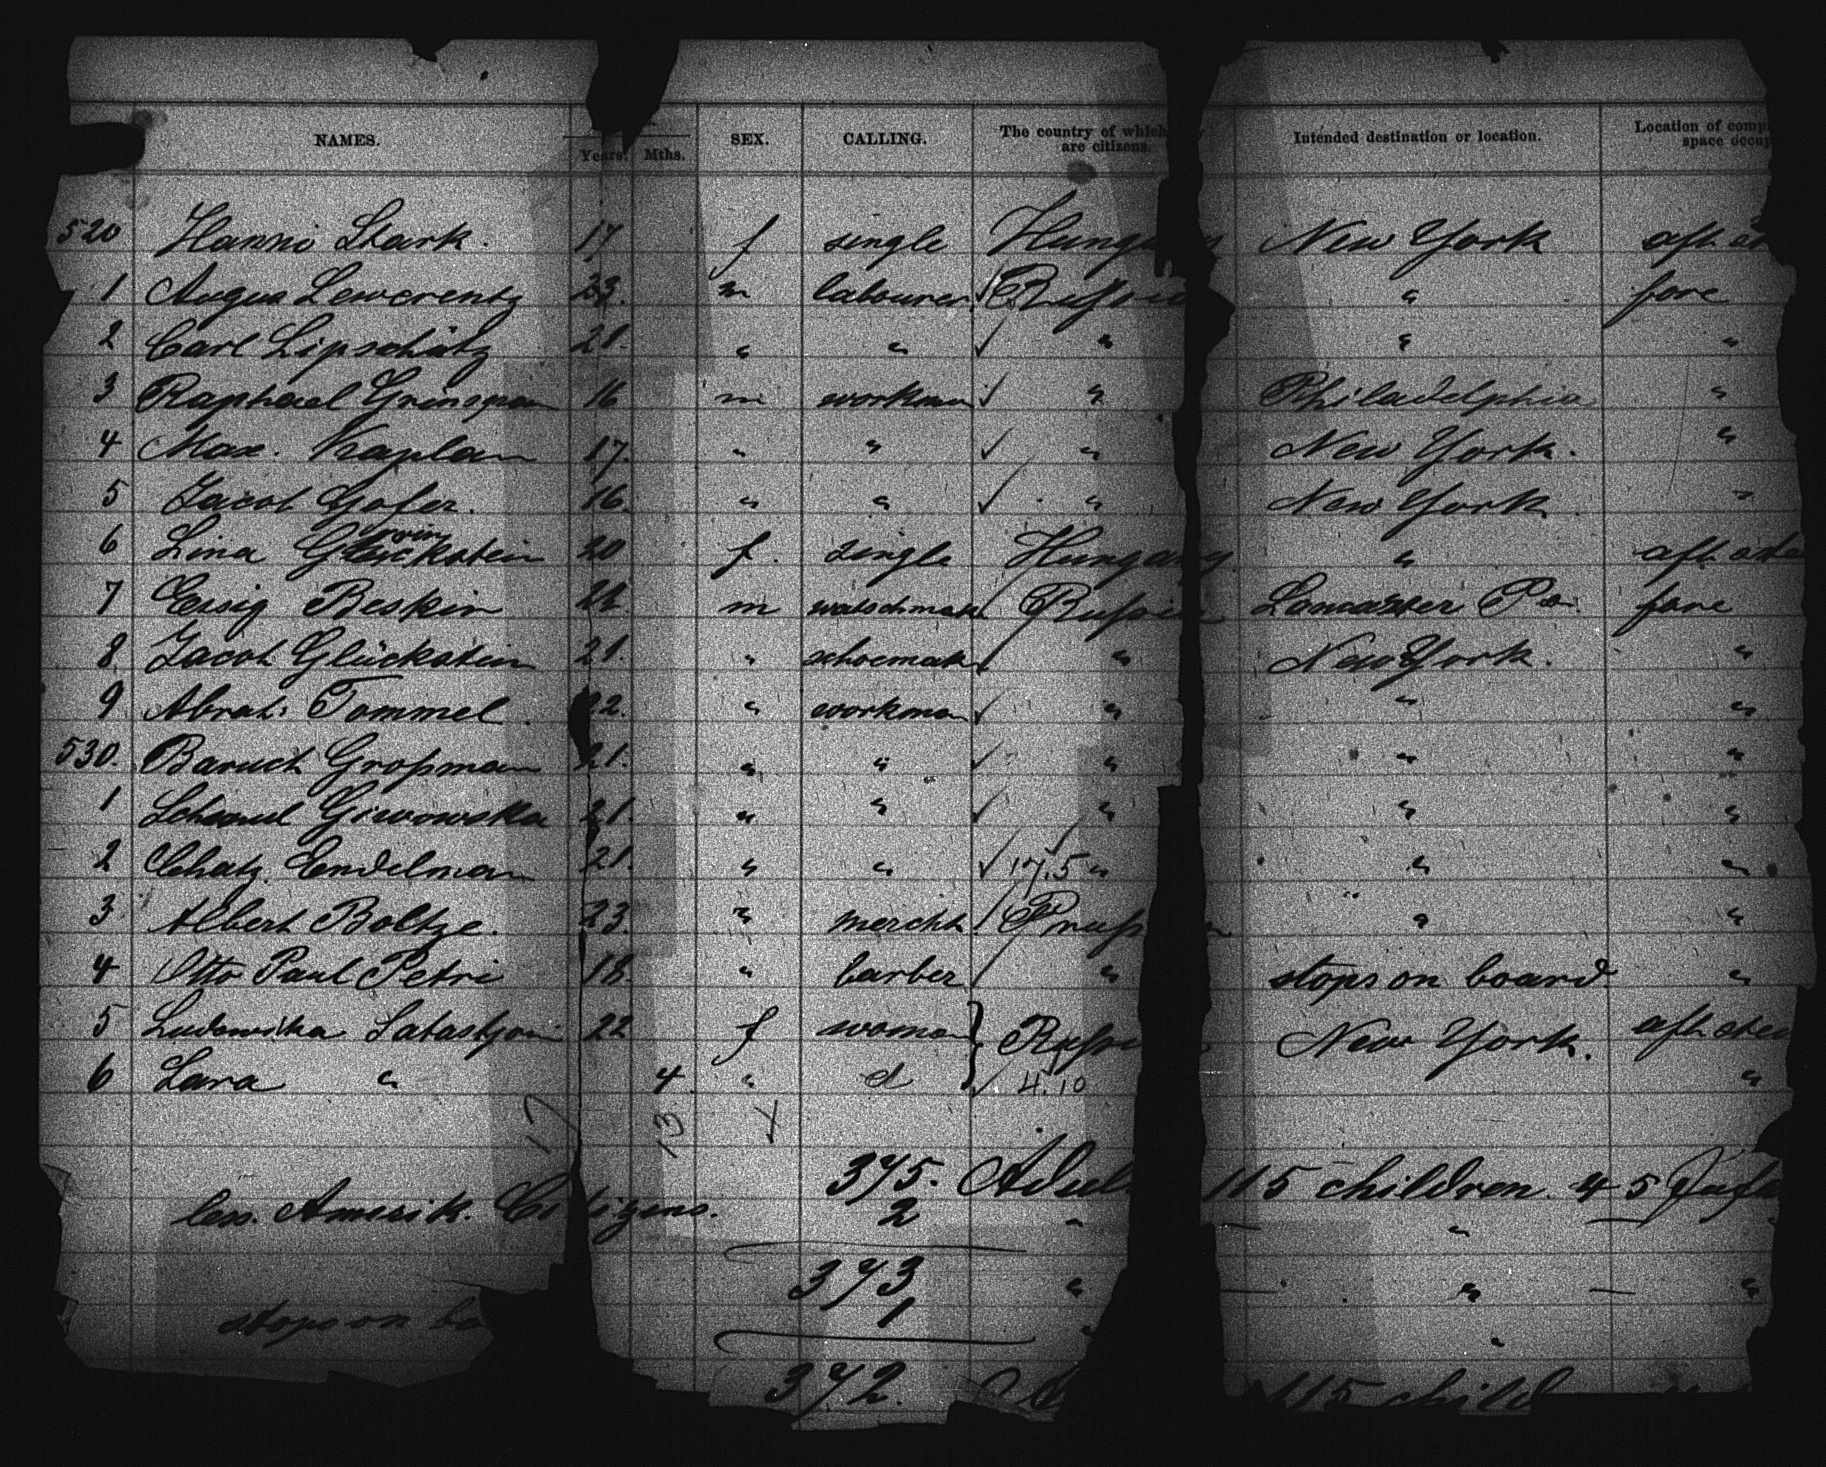 NAMES. Years. Mths. SEX. CALLING. The country of which are citizens. Intended destination or location. Location of comp space occup
520 Hanni Stark. 17 f single Hungary New York aft
1 Lewerentz 23. m labourer Russia " fore
2 Carl Lipschütz 21. " " " " "
3 Raphael Grinspan 16 m workman " Philadelphia "
4 Max. Kaplan 17. " " " New York. "
5 Jacob Gofer. 16. " " " New York "
6 Lina 20 f. single Hungary " aft
7 Essig Beskin m Russia Lancaster Pa. fore
8 Jacob Glückstein 21. " schoemak " New York. "
9 Abrah. Tommel 22. " workman " " "
530. Baruch Großman 21. " " " " "
1 Schmul Giwowska 21. " " " " "
2 Chatz. Endelman 21. " " 17.5 " " "
3 Albert Boltze. 23. " mercht Prussia " "
4 Otto Paul Petri 18. " barber " stops on board "
5 Ludowika 22 f woman Russia New York. aft
6 Lara " 4 " 4.10 "
17 13
375. Adul 115 children. 4 5
less. Amerik. Citizens. 2 " "
373 " " "
stops on bo 1 "
372. 115 child